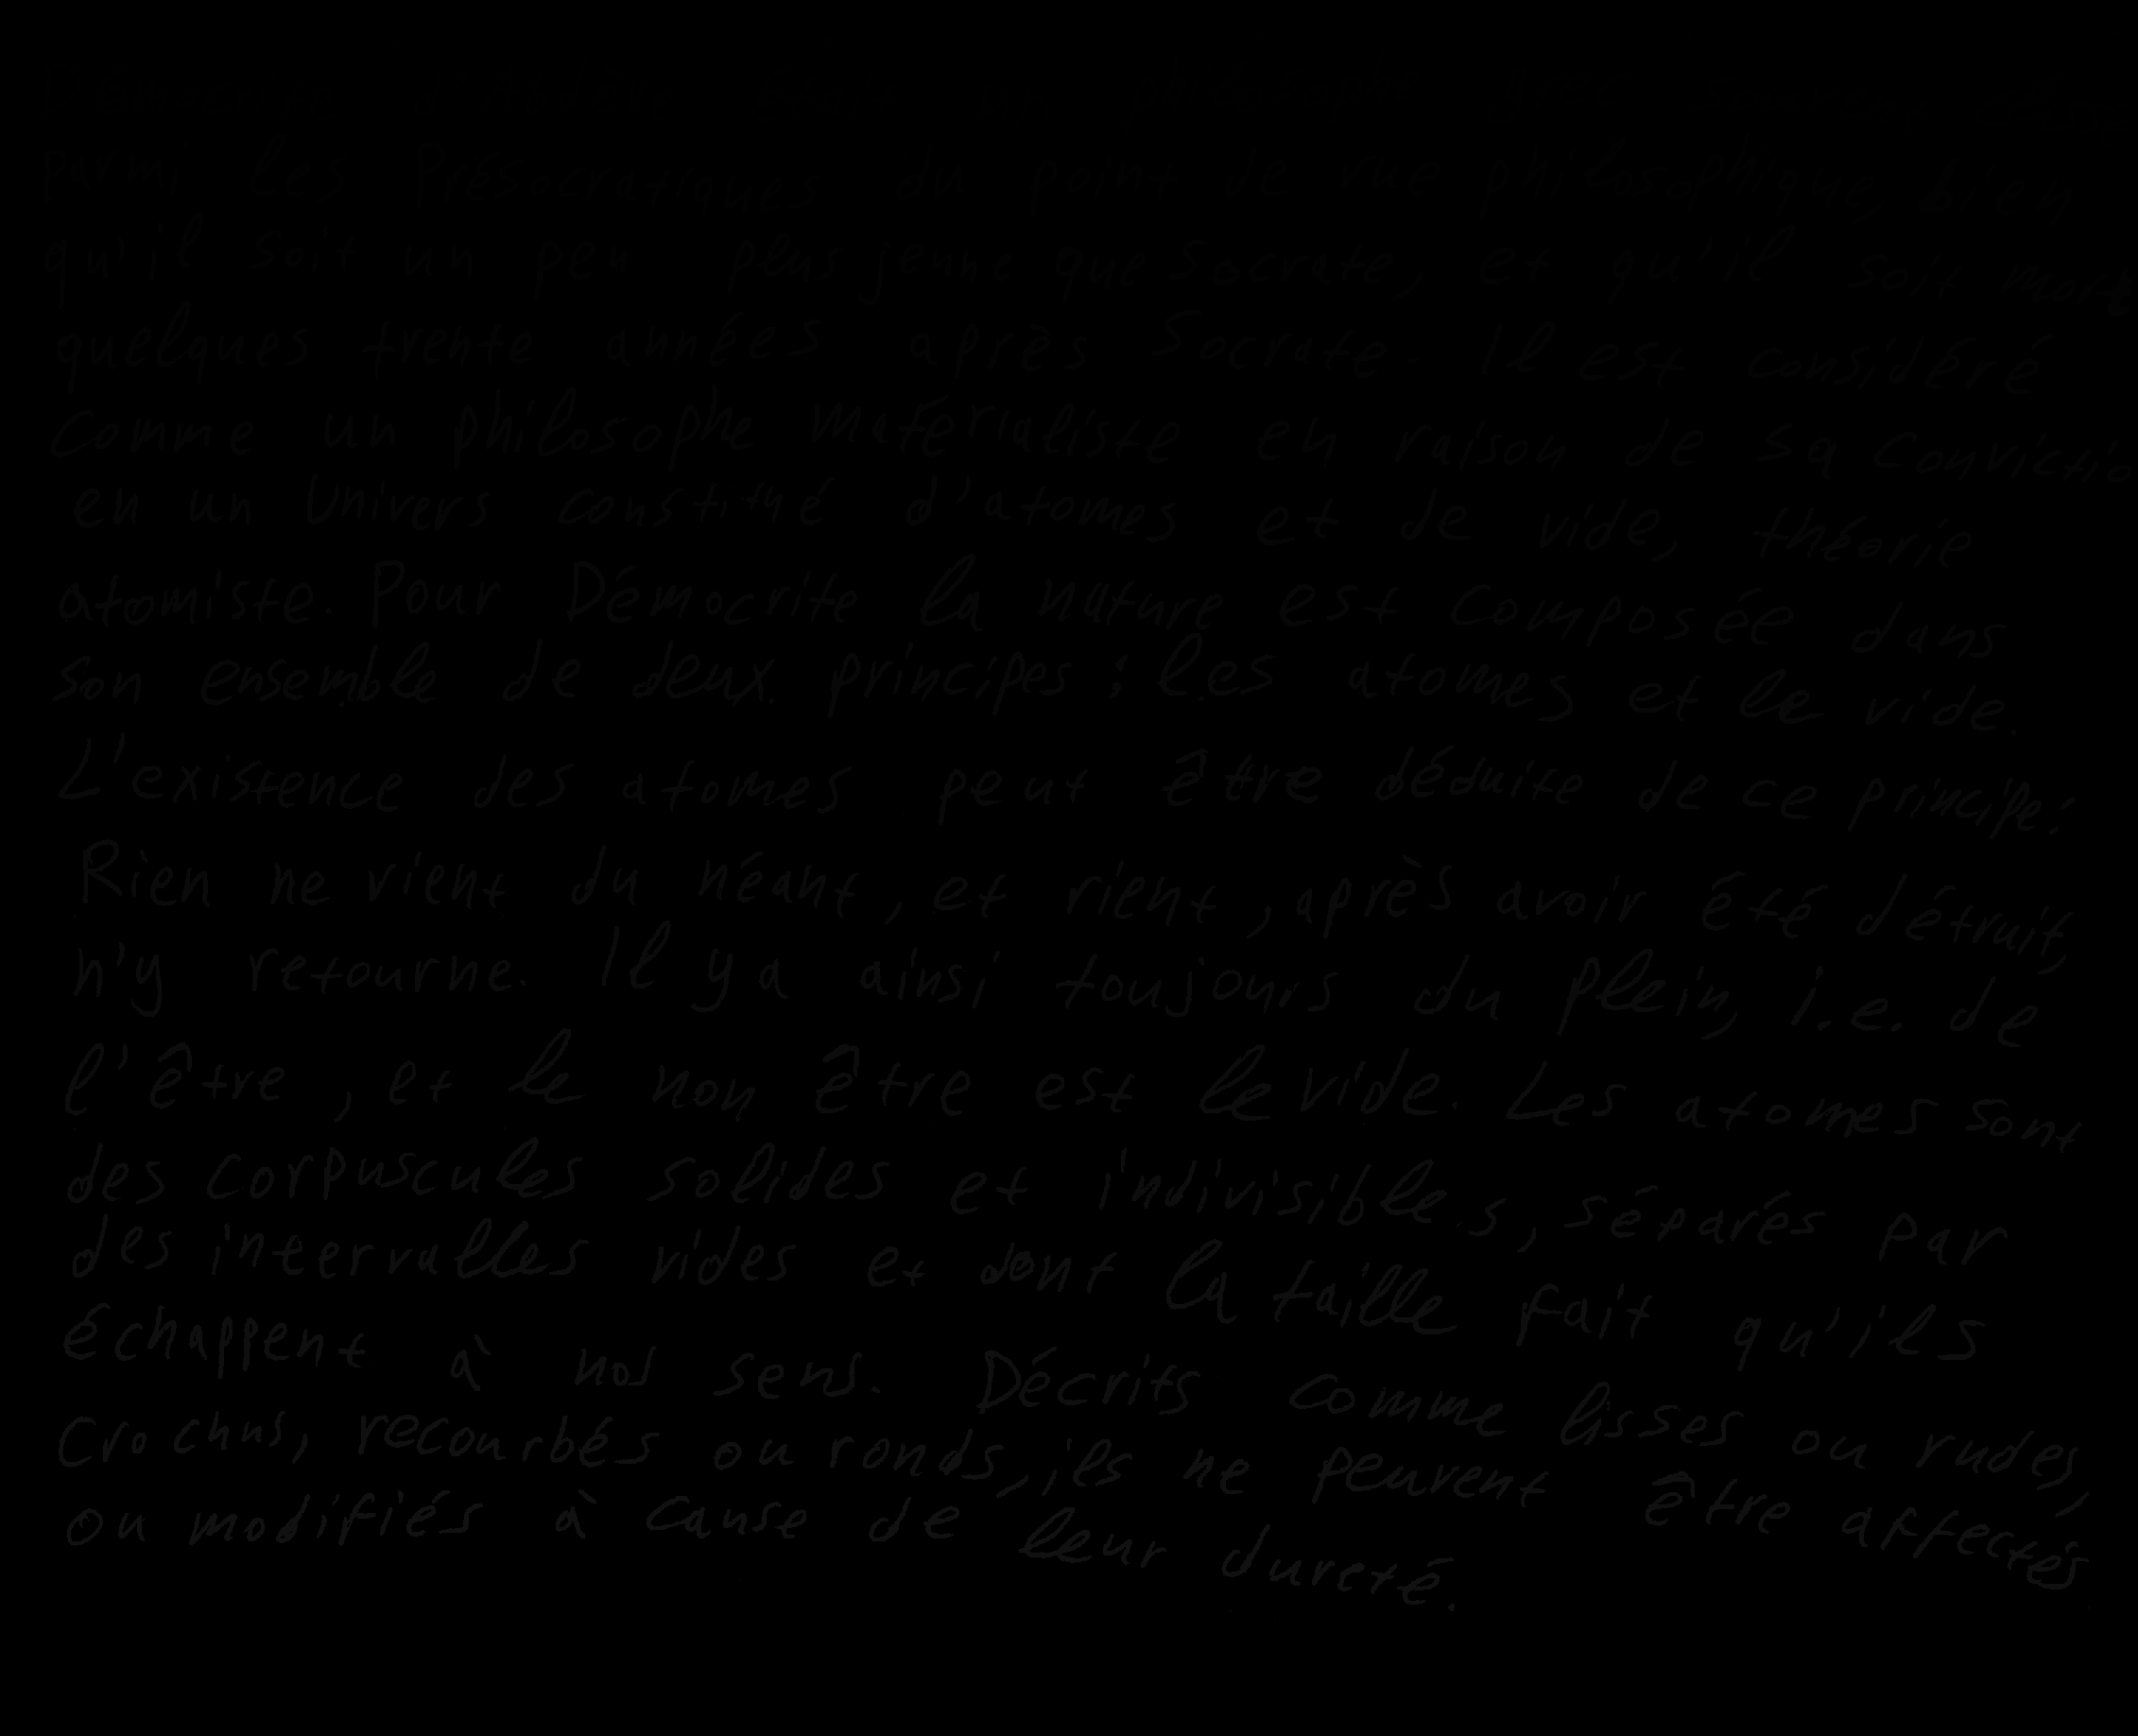 parmi les Présocratiques du point de vue philosophique, bien
qu'il soit un peu plus jeune que Socrate, et qu'il soit mort
quelques trente années après Socrate. Il est considéré
comme un philosophe matérialiste en raison de sa convictio
en un Univers constitué d'atomes et de vide, théorie
atomiste. Pour Démocrite la nature est composée dans
son ensemble de deux principes : les atomes et le vide.
L'existence des atomes peut être déduite de ce principe:
Rien ne vient du néant, et rient, après avoir été détruit,
n'y retourne. Il y a ainsi toujours du plein, i.e. de
l'être, et le non être est le vide. Les atomes sont
des corpuscules solides et indivisibles, séparés par
des intervalles vides et dont la taille fait qu'ils
échappent à nos sens. Décrits comme lisses ou rudes,
crochus, recourbés ou ronds, ils ne peuvent être affectés
ou modifiés à cause de leur dureté.